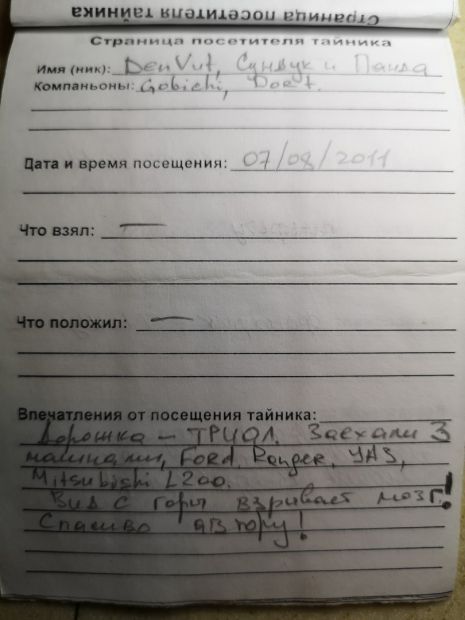 Страница посетителя тайника
Страница посетителя тайника
Имя (ник): DenVut, Сундук и Панда
Компаньоны: Gobichi, Doct.
Дата и время посещения: 07/08/2011
Что взял: —
Что положил: —
Впечатления от посещения тайника:
Дорошка – ТРИАЛ. Заехали 3
машинами, Ford Ranger, УАЗ,
Mitsubishi L200.
Вид с горы взрывает мозг!
Спасибо автору!